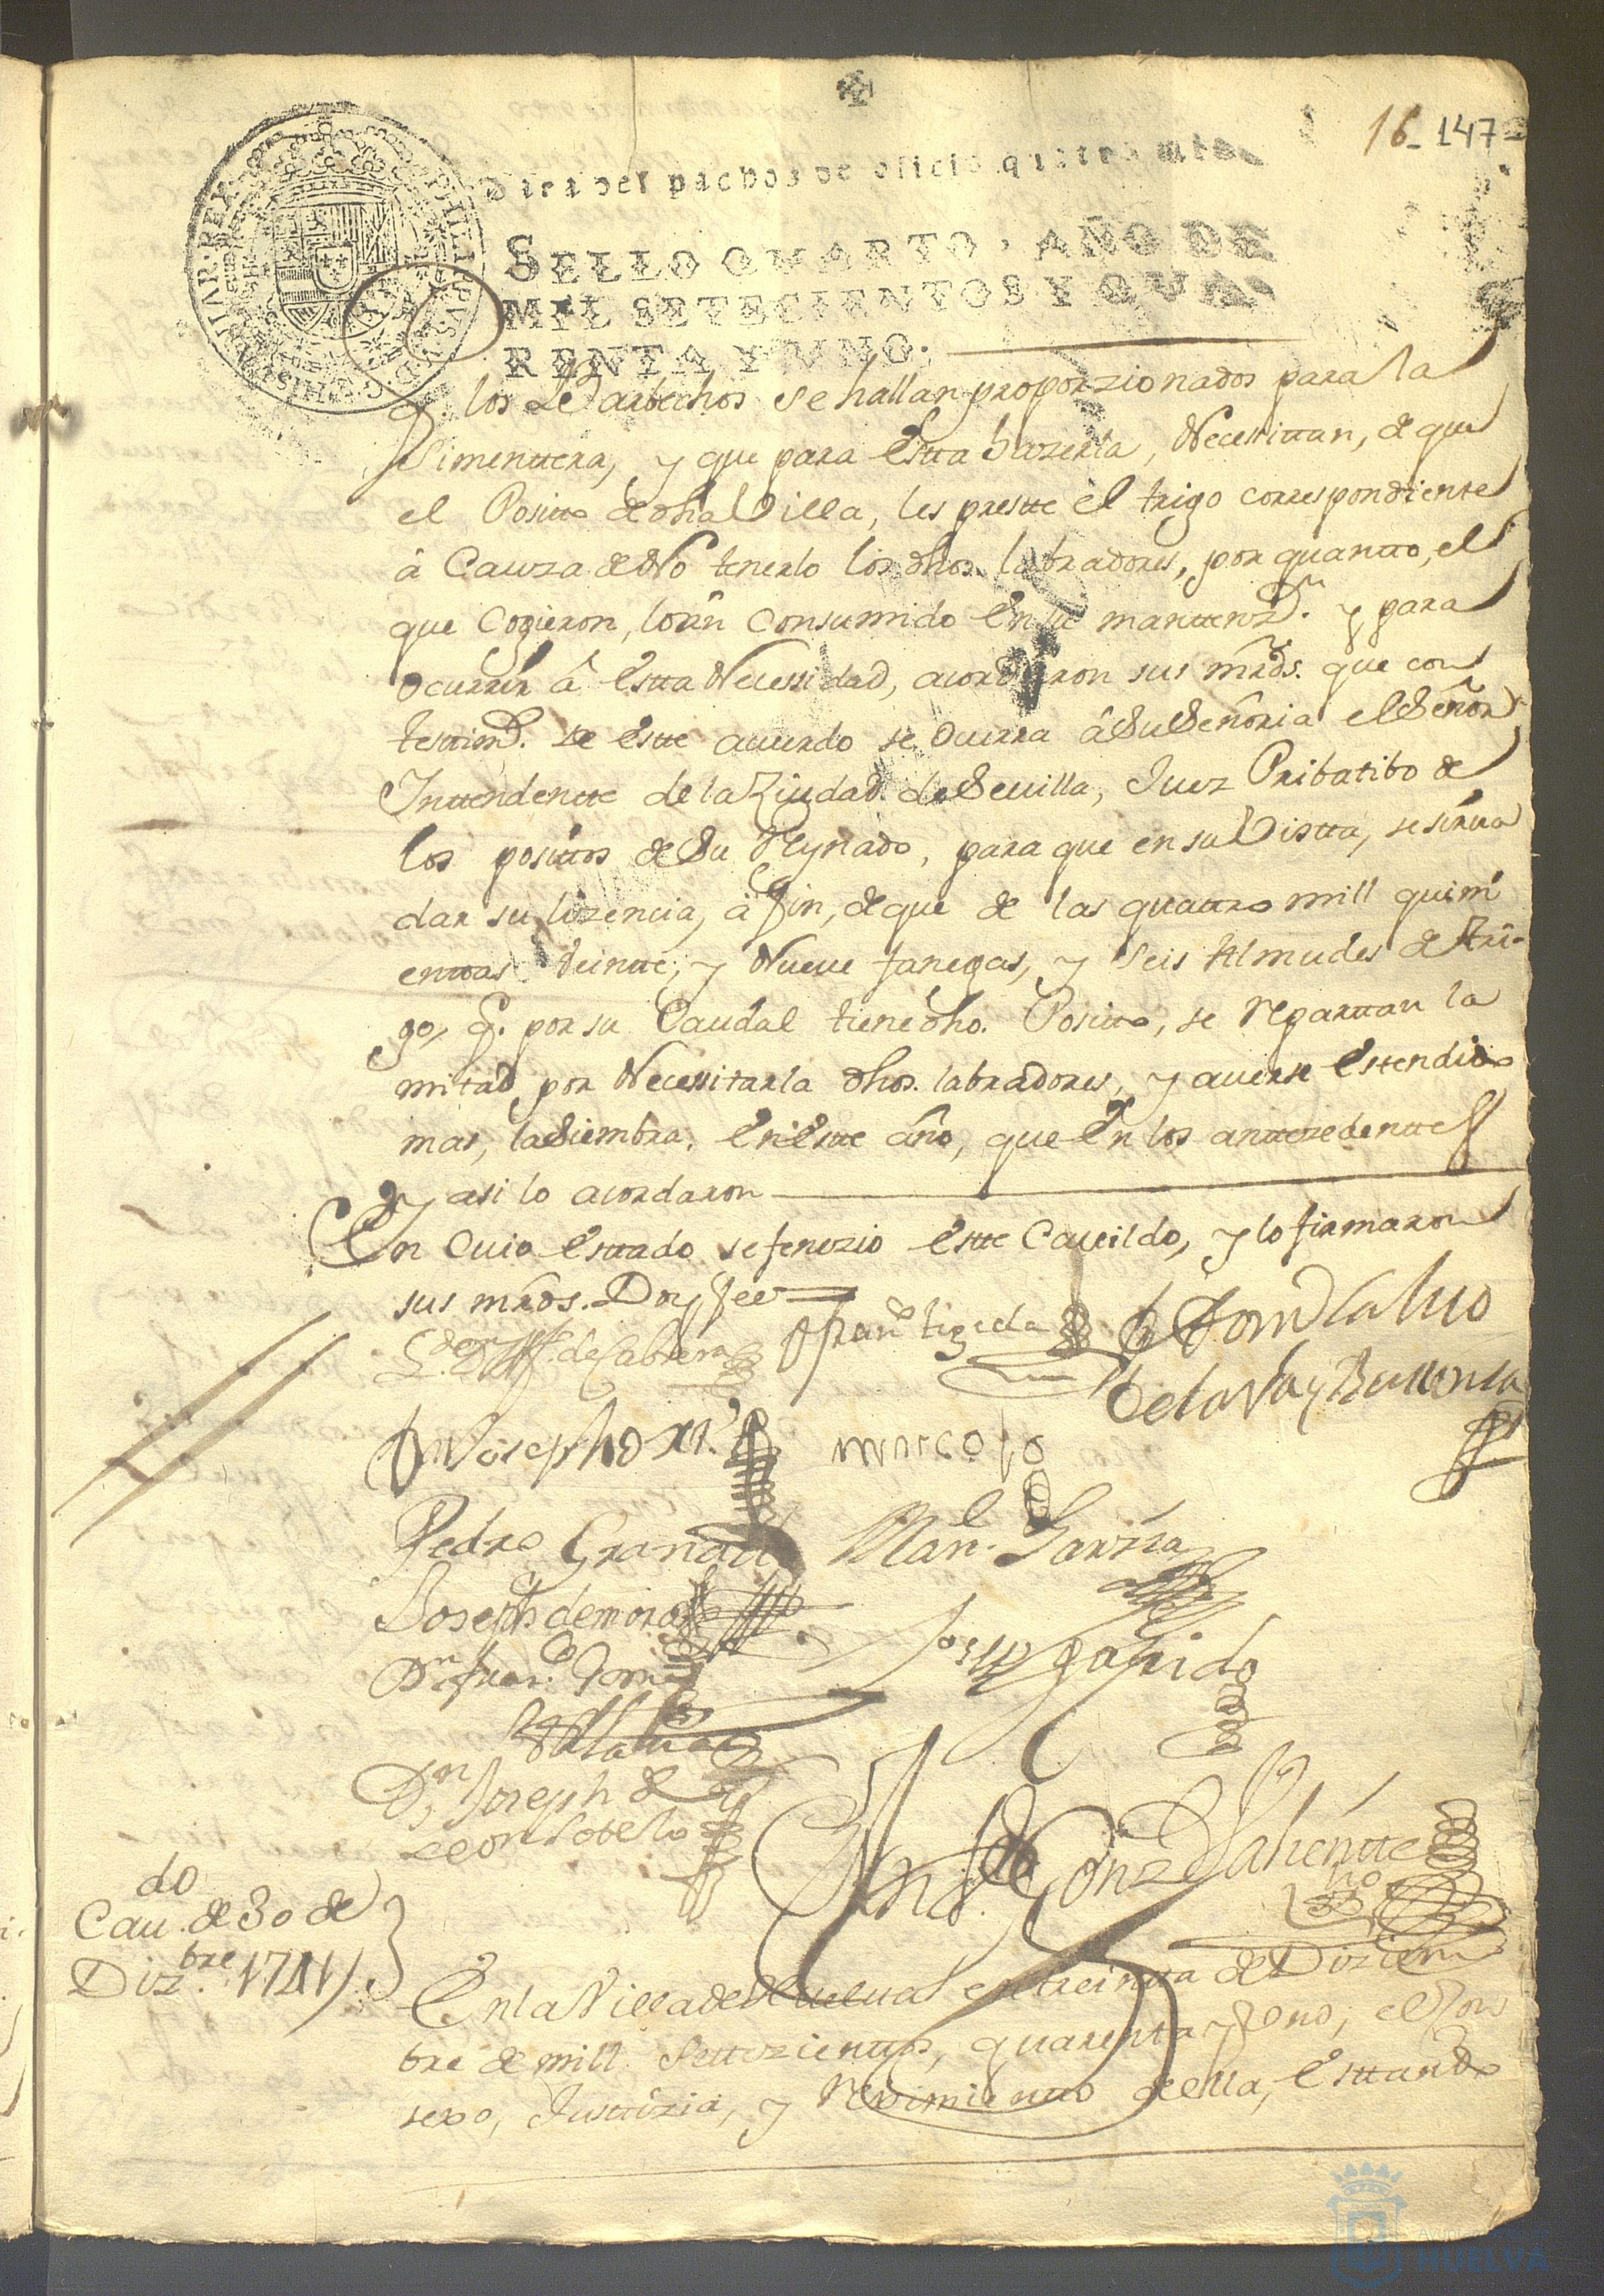 16_ 147
Para despachos de oficio quatro mrs.
SELLO QVARTO, AÑO DE
MIL SETECIENTOS Y QVA-
RENTA Y VNO.
PHILIPPVS V D G HISPANIAR REX
q. los Barbechos se hallan proporzionados para la
Simenttera, y que para estta hazerla, Necesittan, de que
el Positto de dha Villa, les prestte el trigo correspondiente
â Cauza de No tenerlo los dhos. labradores, por quantto, el
que Cogieron, lo án Consumido en su manttenzn. y para
ocurrir â estta Necessidad, acordaron sus mrds. que con
testtimo. de estte acuerdo se ocurra â Su Señoria el Señor
Inttendentte de la Ziudad de Sevilla, Juez Pribatibo de
los posittos de Su Reynado, para que en su Vistta, se sirva
dar su lizencia, â fin, de que de las quattro mill quini
enttas Veintte, y Nueve fanegas, y seis Almudes de tri-
go, q. por su Caudal tiene dho. Positto, se reparttan la
mitad por Necessitarla dhos. labradores, y averse estendido
mas, la Siembra, en estte año, que en los anttezedenttes
y asi lo acordaron
En Cuio esttado se fenezio estte Cavildo, y lo firmaron
sus mrds. Doy fee
de Cabrera
Dn Joseph
Pedro Man. Garzia
Joseph de mora
Joseph garrido
Dn Juan
Dn Joseph de
Leon Sotelo
Gonz Valientte
Cau.do de 30 de
Diz.bre 1741
En la Villa de Huelva en treintta de Diziem
bre de mill settezienttos, quarenta y Uno, el Con
sexo, Justtizia, y Reximientto de ella, esttando
HUELVA